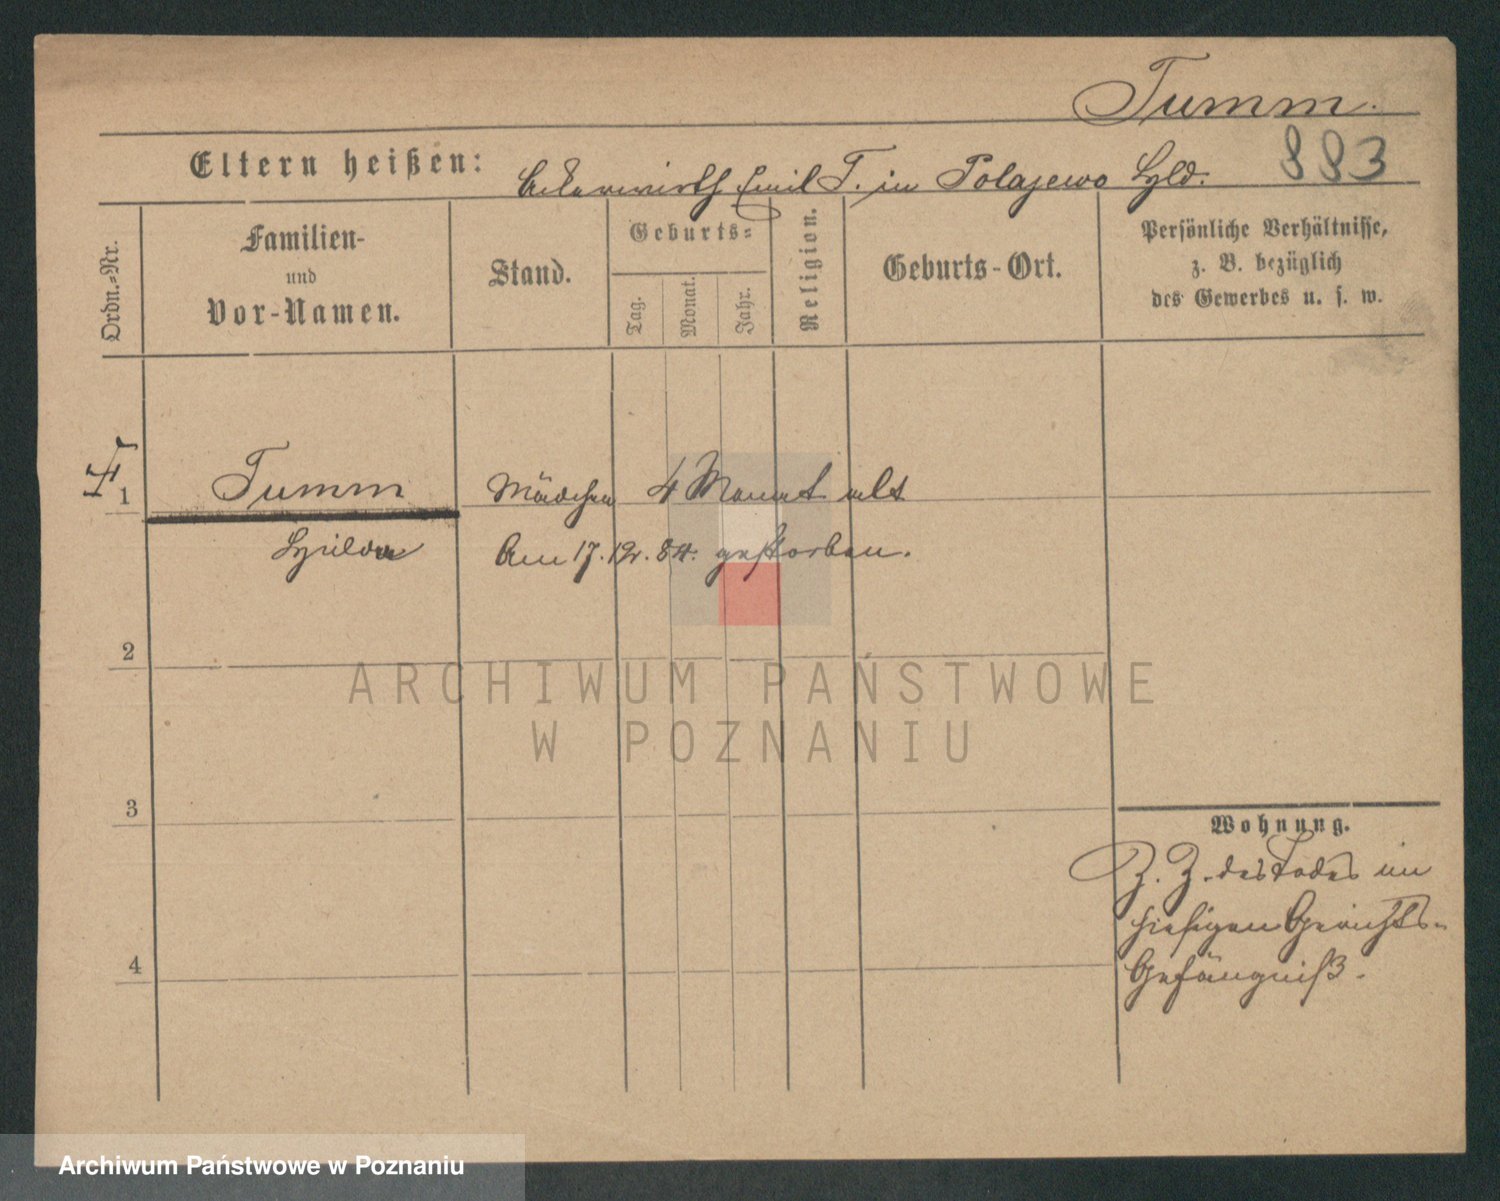 Tumm.
883
Eltern heißen: Ackerwirth Emil T. in Polajewo Hld.
Ordn.-Nr.
Familien-
und
Vor-Namen.
Stand.
Geburts-
Tag.
Monat.
Jahr.
Religion.
Geburts-Ort.
Persönliche Verhältnisse,
z. B. bezüglich
des Gewerbes u. s. w.
1
Tumm Mädchen 4 Monat alt
Hulda Am 17.12.84. gestorben.
2
3
4
Wohnung.
Z. Z. des Todes im
hiesigen Gerichts-
Gefängniß.
ARCHIWUM PAŃSTWOWE
W POZNANIU
Archiwum Państwowe w Poznaniu